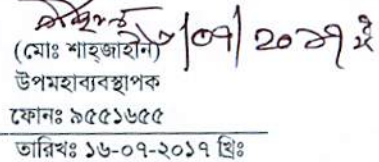 ১৬/০৭/২০১৭ খ্রিঃ
(মোঃ শাহ্জাহান)
উপমহাব্যবস্থাপক
ফোনঃ ৯৫৫১৬৫৫
তারিখঃ ১৬-০৭-২০১৭ খ্রিঃ